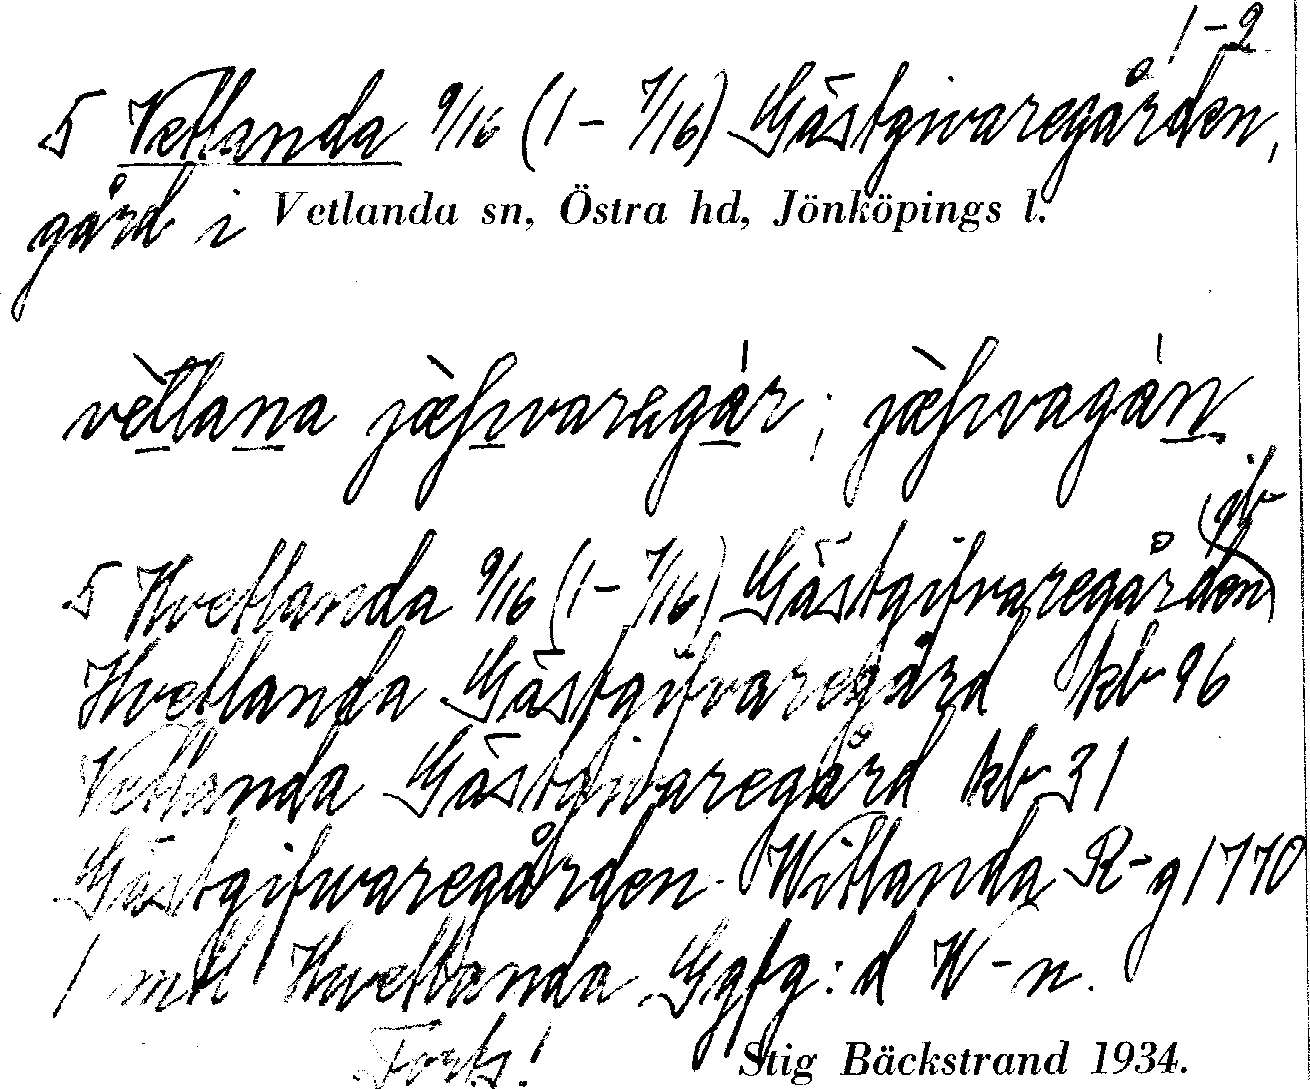 1-2
5 Vetlanda 9/16 (1 - 7/16) Gästgivaregården,
gård i Vetlanda sn, Östra hd, Jönköpings l.
vètlana jæ̀ʃvaregár; jæ̀ʃvagán
jb
5 Hvetlanda 9/16 (1 - 7/16) Gästgifvaregården
Hvetlanda Gästgifvaregård kb 96
Vetlanda Gästgivaregård kb 31
Gästgifwaregården Witlanda R-g 1770
1 mtl Hwetlanda Ggfg:d W-n.
Forts!
Stig Bäckstrand 1934.